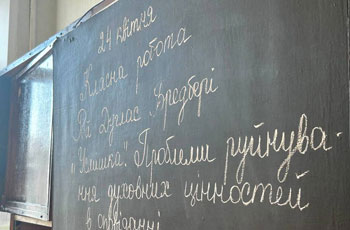 24 квітня
Класна робота
Рей Дуглас Бредбері
"Усмішка". Проблеми руйнува-
ння духовних цінностей
в оповіданні